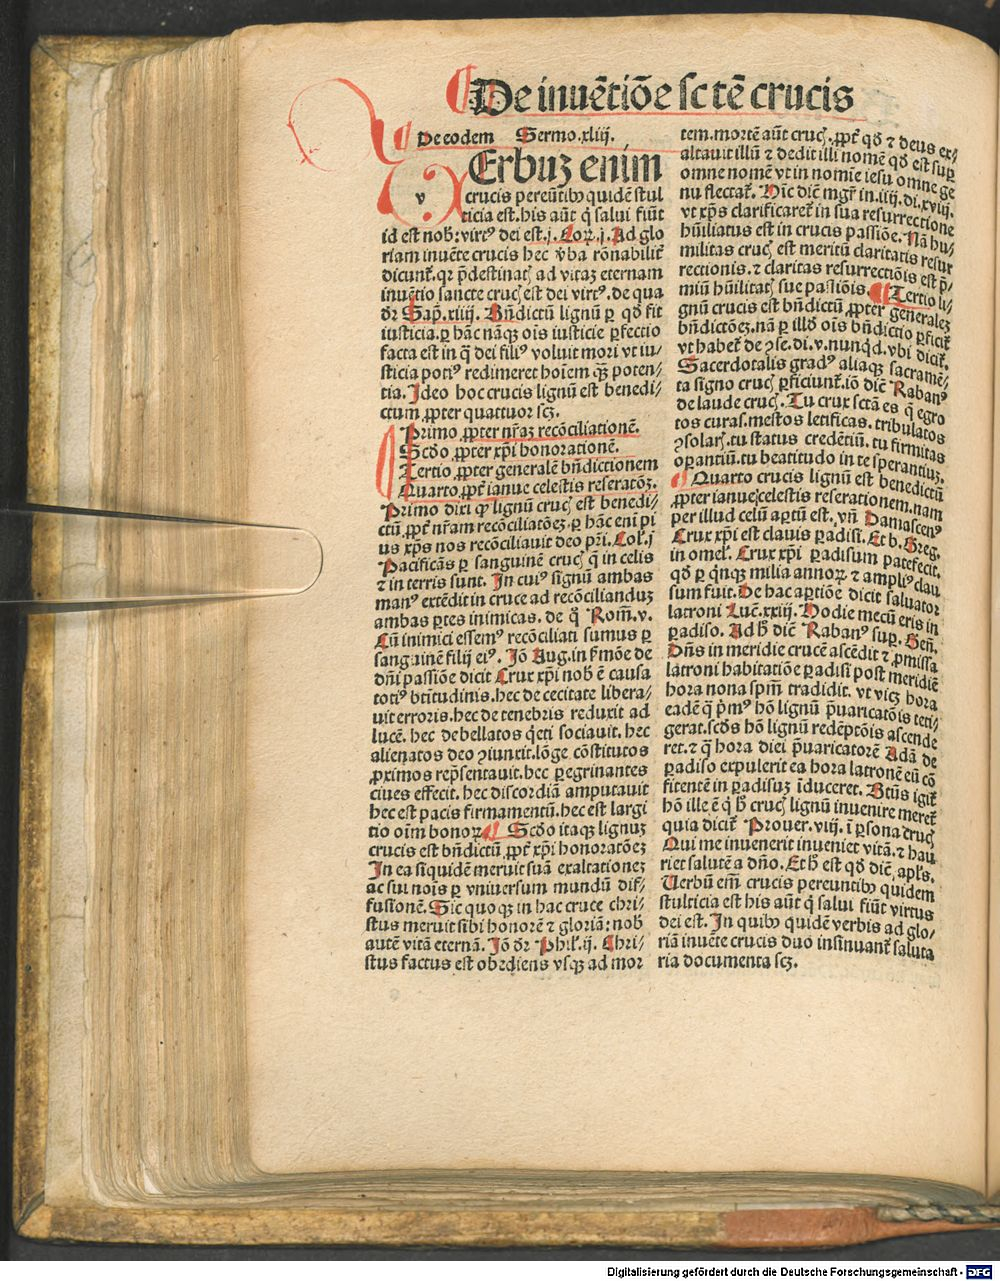 De inuētiōe sctē crucis
De eodem Sermo.xliij.
v
Erbuꝫ enim
crucis pereūtibꝰ quidē stul
ticia est. his aūt q̇ salui fiūt
id est nob̄: virtꝰ dei est.j. Coꝝ.j. Ad glo
riam inuēte crucis hec v̄ba rōnabilit̄
dicunt̄. qꝛ p̄destinatꝭ ad vitaꝫ eternam
inuētio sancte crucꝭ est dei virtꝰ. de qua
dꝛ Sap̄.xiiij. Bn̄dictū lignū ꝑ qd̄ fit
iusticia. ꝑ hāc nāqꝫ oīs iusticie ꝑfectio
facta est in q̄ dei filiꝰ voluit mori vt iu/
sticia potiꝰ redimeret hoīem qꝫ poten/
tia. Ideo hoc crucis lignū est benedi/
ctum ꝓpter quattuor scꝫ.
Primo ꝓpter nr̄aꝫ recōciliationē.
Scd̄o ꝓpter xp̄i honorationē.
Tertio ꝓpter generalē bn̄dictionem
Quarto ꝓpt̄ ianue celestis reseratōꝫ.
Primo dixi ꝙ lignū crucꝭ est benedi/
ctū ꝓpt̄ nr̄am recōciliatōeꝫ. ꝑ hāc enī pi
us xp̄s nos recōciliauit deo pr̄i. Col̄.j
Pacificās ꝑ sanguinē crucꝭ q̄ in celis
⁊ in terris sunt. In cuiꝰ signū ambas
manꝰ extēdit in cruce ad recōcilianduꝫ
ambas ꝑtes inimicas. de q̊ Rom̄.v.
Cū inimici essemꝰ recōciliati sumus ꝑ
sanguinē filij eiꝰ. Iō Aug. in ẜmōe de
dn̄i passiōe dicit Crux xp̄i nob̄ ē causa
totiꝰ btītudinis. hec de cecitate libera/
uit erroris. hec de tenebris reduxit ad
lucē. hec debellatos q̇eti sociauit. hec
alienatos deo ꝯiunxit. lōge cōstitutos
ꝓximos rep̄sentauit. hec ꝑegrinantes
ciues effecit. hec discordiā amputauit
hec est pacis firmamentū. hec est largi
tio oīm bonoꝝ. Scd̄o itaqꝫ lignuꝫ
crucis est bn̄dictū ꝓpt̄ xp̄i honoratōeꝫ
In ea siquidē meruit suā exaltationeꝫ
ac sui noīs ꝑ vniuersum mundū dif/
fusionē. Sic quoqꝫ in hac cruce chri/
stus meruit sibi honorē ⁊ gloriā: nob̄
autē vitā eternā. Iō dꝛ Phil̄.ij. Chri/
stus factus est obediens vsqꝫ ad mor
tem. mortē aūt crucꝭ. ꝓpt̄ qd̄ ⁊ deus ex/
altauit illū ⁊ dedit illi nomē qd̄ est suꝑ
omne nomē vt in nomīe iesu omne ge
nu flectat̄. Hīc dic̄ mgr̄ in.iij. di.xviij.
vt xp̄s clarificaret̄ in sua resurrectione
hūiliatus est in crucis passiōe. Nā hu/
militas crucꝭ est meritū claritatis resur
rectionis. ⁊ claritas resurrectiōis est p̄/
miū hūilitatꝭ sue passiōis. Tertio li/
gnū crucis est bn̄dictū ꝓpter generaleꝫ
bn̄dictōeꝫ. nā ꝑ illd̄ oīs bn̄dictio ꝑficit̄
vt habet̄ de ꝯse. di.v. nunqd̄. vbi dicit̄.
Sacerdotalis gradꝰ aliaqꝫ sacramē/
ta signo crucꝭ ꝑficiunt̄. iō dic̄ Rabanꝰ
de laude crucꝭ. Tu crux sctā es q̄ egro
tos curas. mestos letificas. tribulatos
ꝯsolarꝭ. tu status credētiū. tu firmitas
oꝑantiū. tu beatitudo in te sperantiuꝫ.
Quarto crucis lignū est benedictū
ꝓpter ianue celestis reserationem. nam
per illud celū aꝑtū est. vn̄ Damascenꝰ
Crux xp̄i est clauis ꝑadisi. Et b. Greg.
in omel̄. Crux xp̄i ꝑadisum patefecit.
qd̄ ꝑ q̇nqꝫ milia annoꝝ ⁊ ampliꝰ clau
sum fuit. De hac aꝑtiōe dicit saluator
latroni Luc̄.xxiij. Hodie mecū eris in
ꝑadiso. Ad h̄ dic̄ Rabanꝰ suꝑ. Gen̄.
Dn̄s in meridie crucē ascēdit ⁊ ꝓmissa
latroni habitatiōe ꝑadisi post meridiē
hora nona spm̄ tradidit. vt vicꝫ hora
eadē q̄ p̄mꝰ hō lignū p̄uaricatōis teti/
gerat. scd̄s hō lignū redēptōis ascende
ret. ⁊ q̄ hora diei p̄uaricatorē Adā de
ꝑadiso expulerit ea hora latronē eū cō
fitentē in ꝑadisuꝫ īduceret. Btūs igit̄
hō ille ē q̇ h̄ crucꝭ lignū inuenire meret̄
quia dicit̄ Prouer.viij. ī ꝑsona crucꝭ
Qui me inuenerit inueniet vitā. ⁊ hau
riet salutē a dn̄o. Et h̄ est qd̄ dic̄ apl̄s.
Verbū em̄ crucis pereuntibꝰ quidem
stulticia est his aūt q̇ salui fiūt virtus
dei est. In quibꝰ quidē verbis ad glo/
riā inuēte crucis duo insinuant̄ saluta
ria documenta scꝫ.
Digitalisierung gefördert durch die Deutsche Forschungsgemeinschaft - DFG